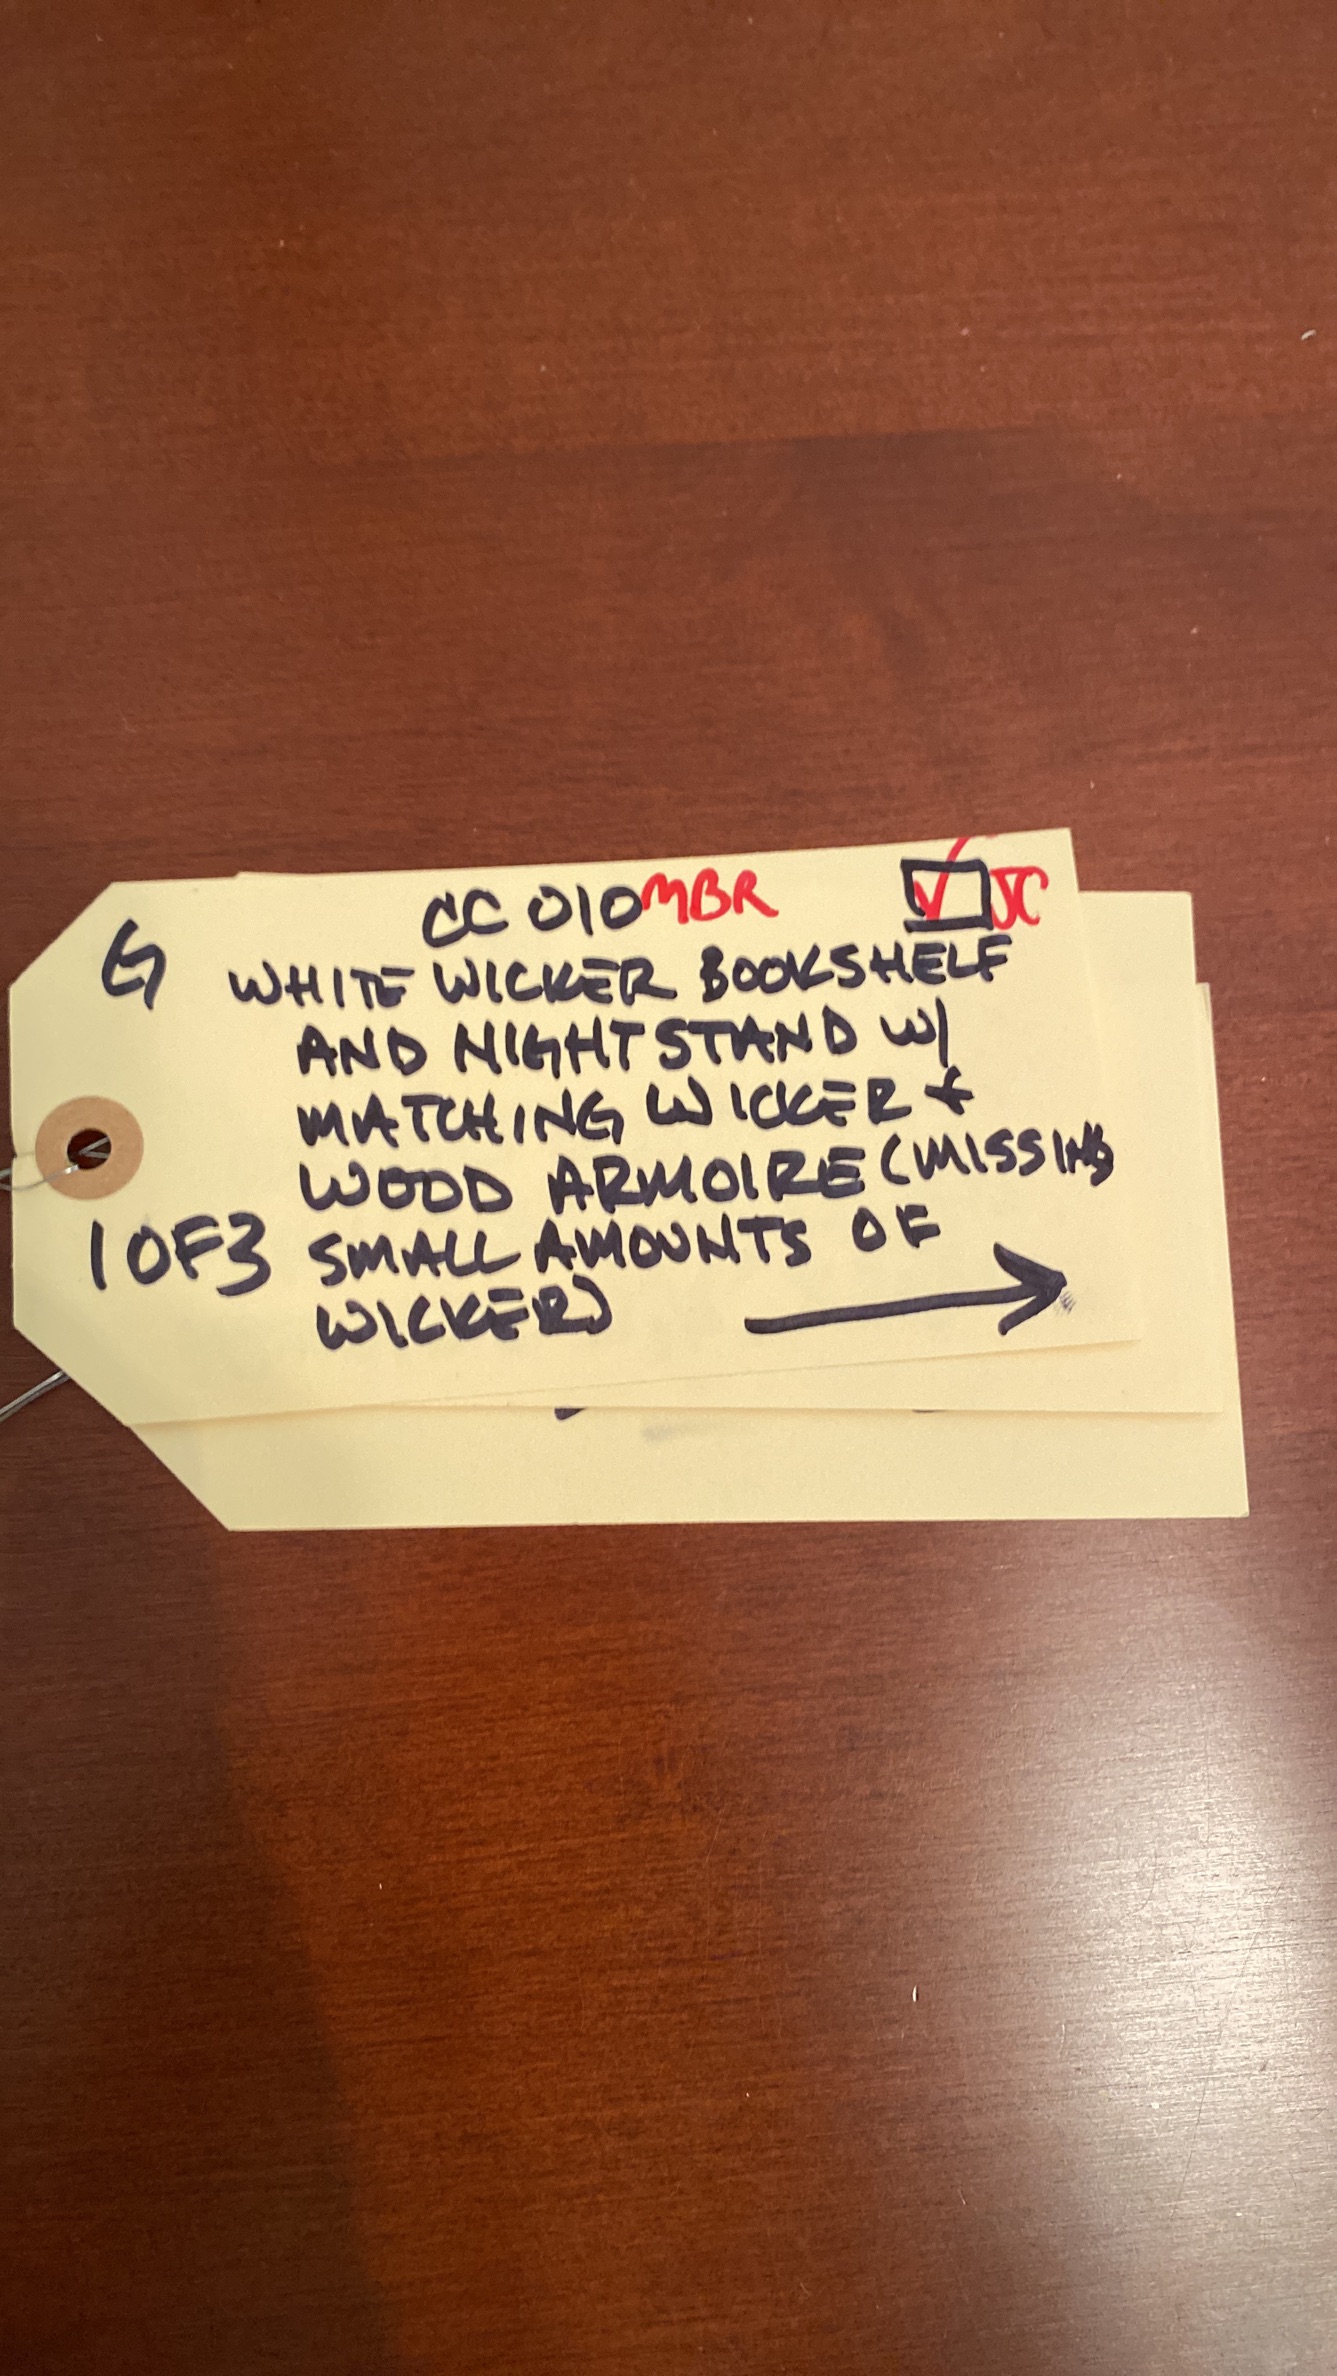 CC 010 MBR ✓ JC
G WHITE WICKER BOOKSHELF
AND NIGHTSTAND W/
MATCHING WICKER &
WOOD ARMOIRE (MISSING
1 OF 3 SMALL AMOUNTS OF
WICKER) →